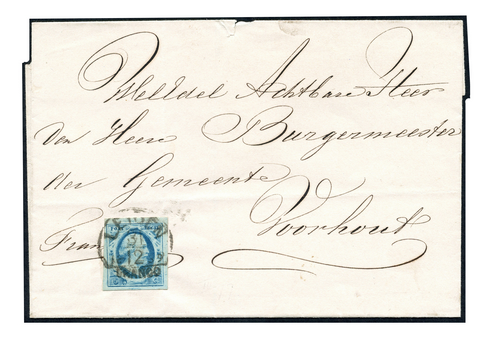 WelEdel Achtbare Heer
Den Heere Burgermeester
der Gemeente
Voorhout
Fran
12
FRANCO